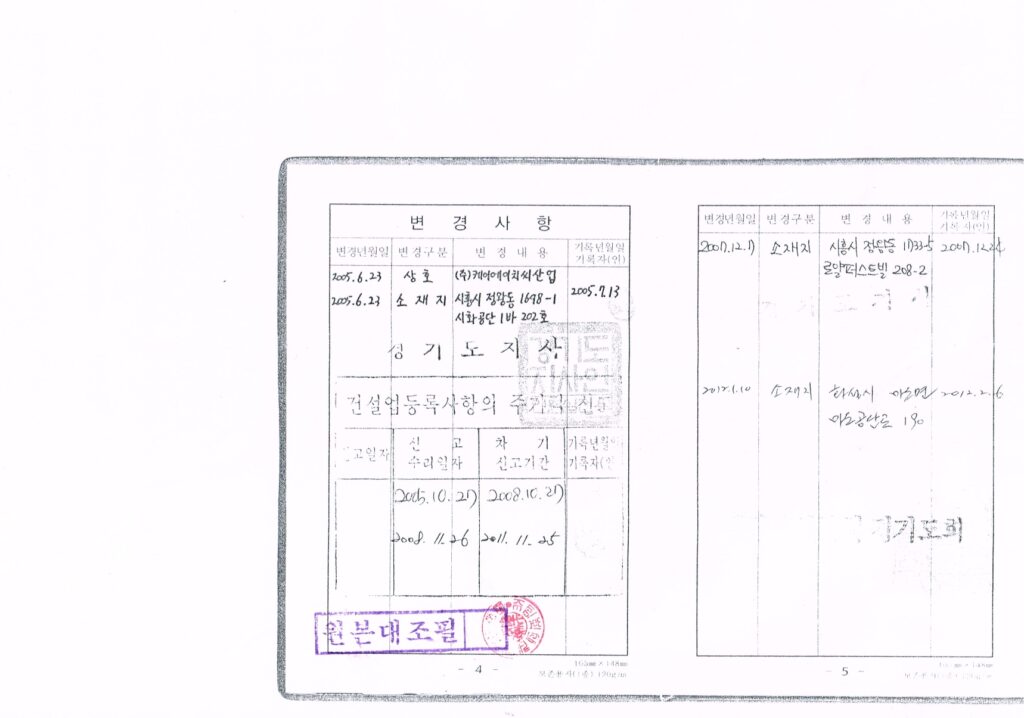 변 경 사 항
변경년월일 변경구분 변 경 내 용 기록년월일
기록자(인)
2005.6.23 상 호 (주)케이에이치씨산업
2005.6.23 소 재 지 시흥시 정왕동 1698-1 2005.7.13
시화공단 1바 202호
경 기 도 지 사
경기도
지사인
건설업등록사항의 주기적 신고
신고일자 신 고 차 기 기록년월일
수리일자 신고기간 기록자(인)
2005.10.27 2008.10.27
2008.11.26 2011.11.25
원본대조필
- 4 -
165㎜×148㎜
보존용지(1종) 120g/㎡
변경년월일 변경구분 변 경 내 용 기록년월일
기록자(인)
2007.12.7 소재지 시흥시 정왕동 1733-5 2007.12.24
로얄퍼스트빌 208-2
2012.1.10 소재지 화성시 마도면 2012.2.6
마도공단로 190
기도회
- 5 -
165㎜×148㎜
보존용지(1종) 120g/㎡